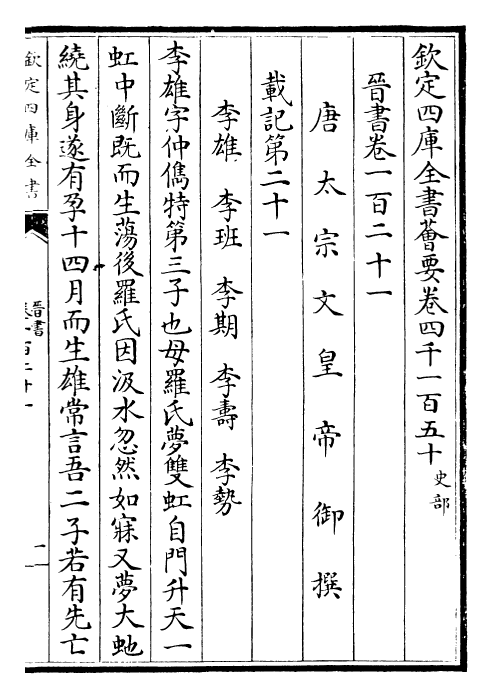 欽定四庫全書薈要卷四千一百五十 史部
晉書卷一百二十一
唐太宗文皇帝御撰
載記第二十一
李雄 李班 李期 李壽 李勢
李雄字仲儁特第三子也母羅氏夢雙虹自門升天一
虹中斷既而生蕩後羅氏因汲水忽然如寐又夢大虵
繞其身遂有孕十四月而生雄常言吾二子若有先亡
欽定四庫全書
晉書
卷一百二十一